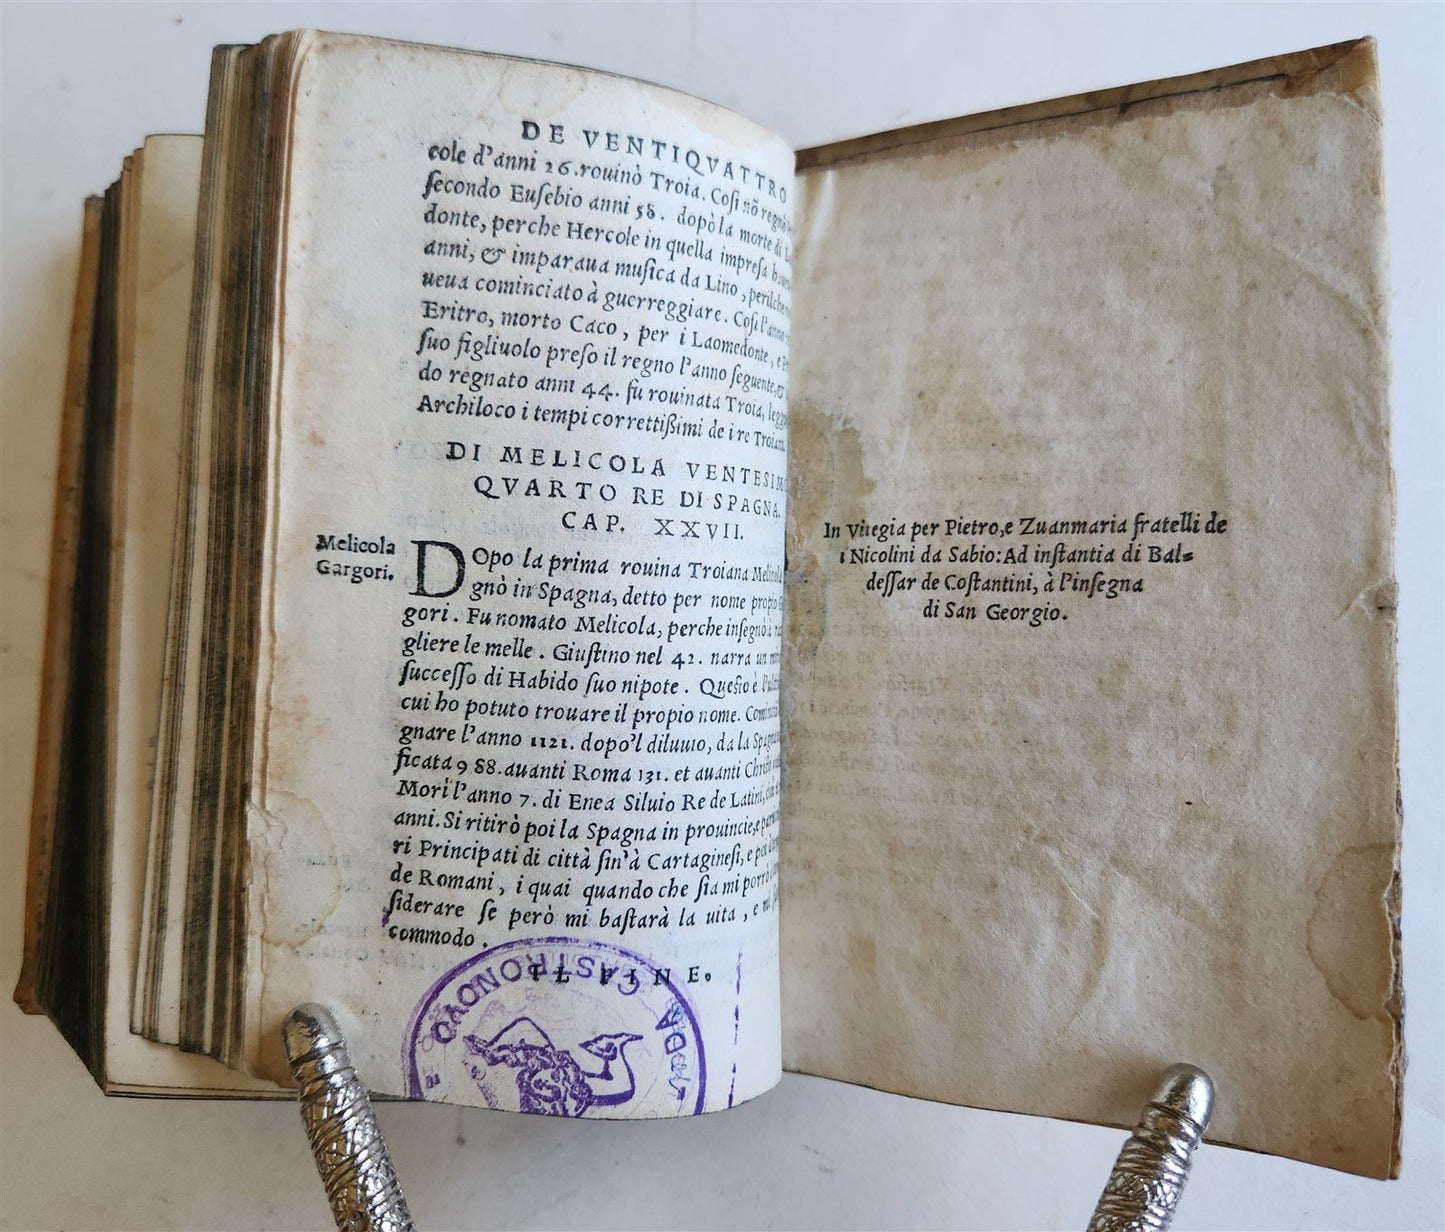 DE VENTIQVATTRO
cole d'anni 26. rouinò Troia. Cosi nõ regnò
secondo Eusebio anni 58. dopò la morte di
donte, perche Hercole in quella impresa
anni, & imparaua musica da Lino, perilche
ueua cominciato à guerreggiare. Cosi l'anno
Eritro, morto Caco, per i Laomedonte, e
suo figliuolo preso il regno l'anno seguente, &
do regnato anni 44. fu rouinata Troia,
Archiloco i tempi correttißimi de i re Troiani
DI MELICOLA VENTESIM
QVARTO RE DI SPAGNA.
CAP. XXVII.
Melicola
Gargori.
DOpo la prima rouina Troiana Melicola
gnò in Spagna, detto per nome proprio
gori. Fu nomato Melicola, perche insegnò à
gliere le melle. Giustino nel 42. narra un
successo di Habido suo nipote. Questo è
cui ho potuto trouare il propio nome.
gnare l'anno 1121. dopo'l diluuio, da la Spagna
ficata 988. auanti Roma 131. et auanti
Morì l'anno 7. di Enea Siluio Re de Latini,
anni. Si ritirò poi la Spagna in prouincie, e
ri Principati di città sin'à Cartaginesi, e poi
de Romani, i quai quando che sia mi porrò
siderare se però mi bastarà la uita, e
commodo.
IL FINE.
CASTRONOVO
In Vinegia per Pietro, e Zuanmaria fratelli de
i Nicolini da Sabio: Ad instantia di Bal=
dessar de Costantini, à l'insegna
di San Georgio.